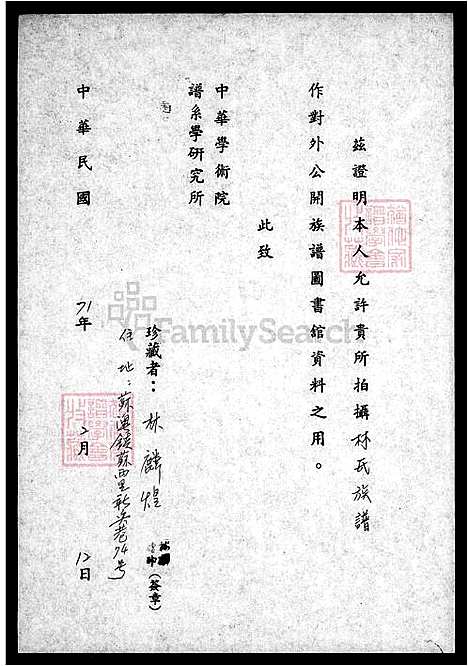 茲證明本人允許貴所拍攝林氏族譜
作對外公開族譜圖書館資料之用。
此致
中華學術院
譜系學研究所
珍藏者：林麟煌
(簽章)
住地：蘇澳鎮蘇西里新吳巷74號
中華民國 71年 2月 12日
FamilySearch